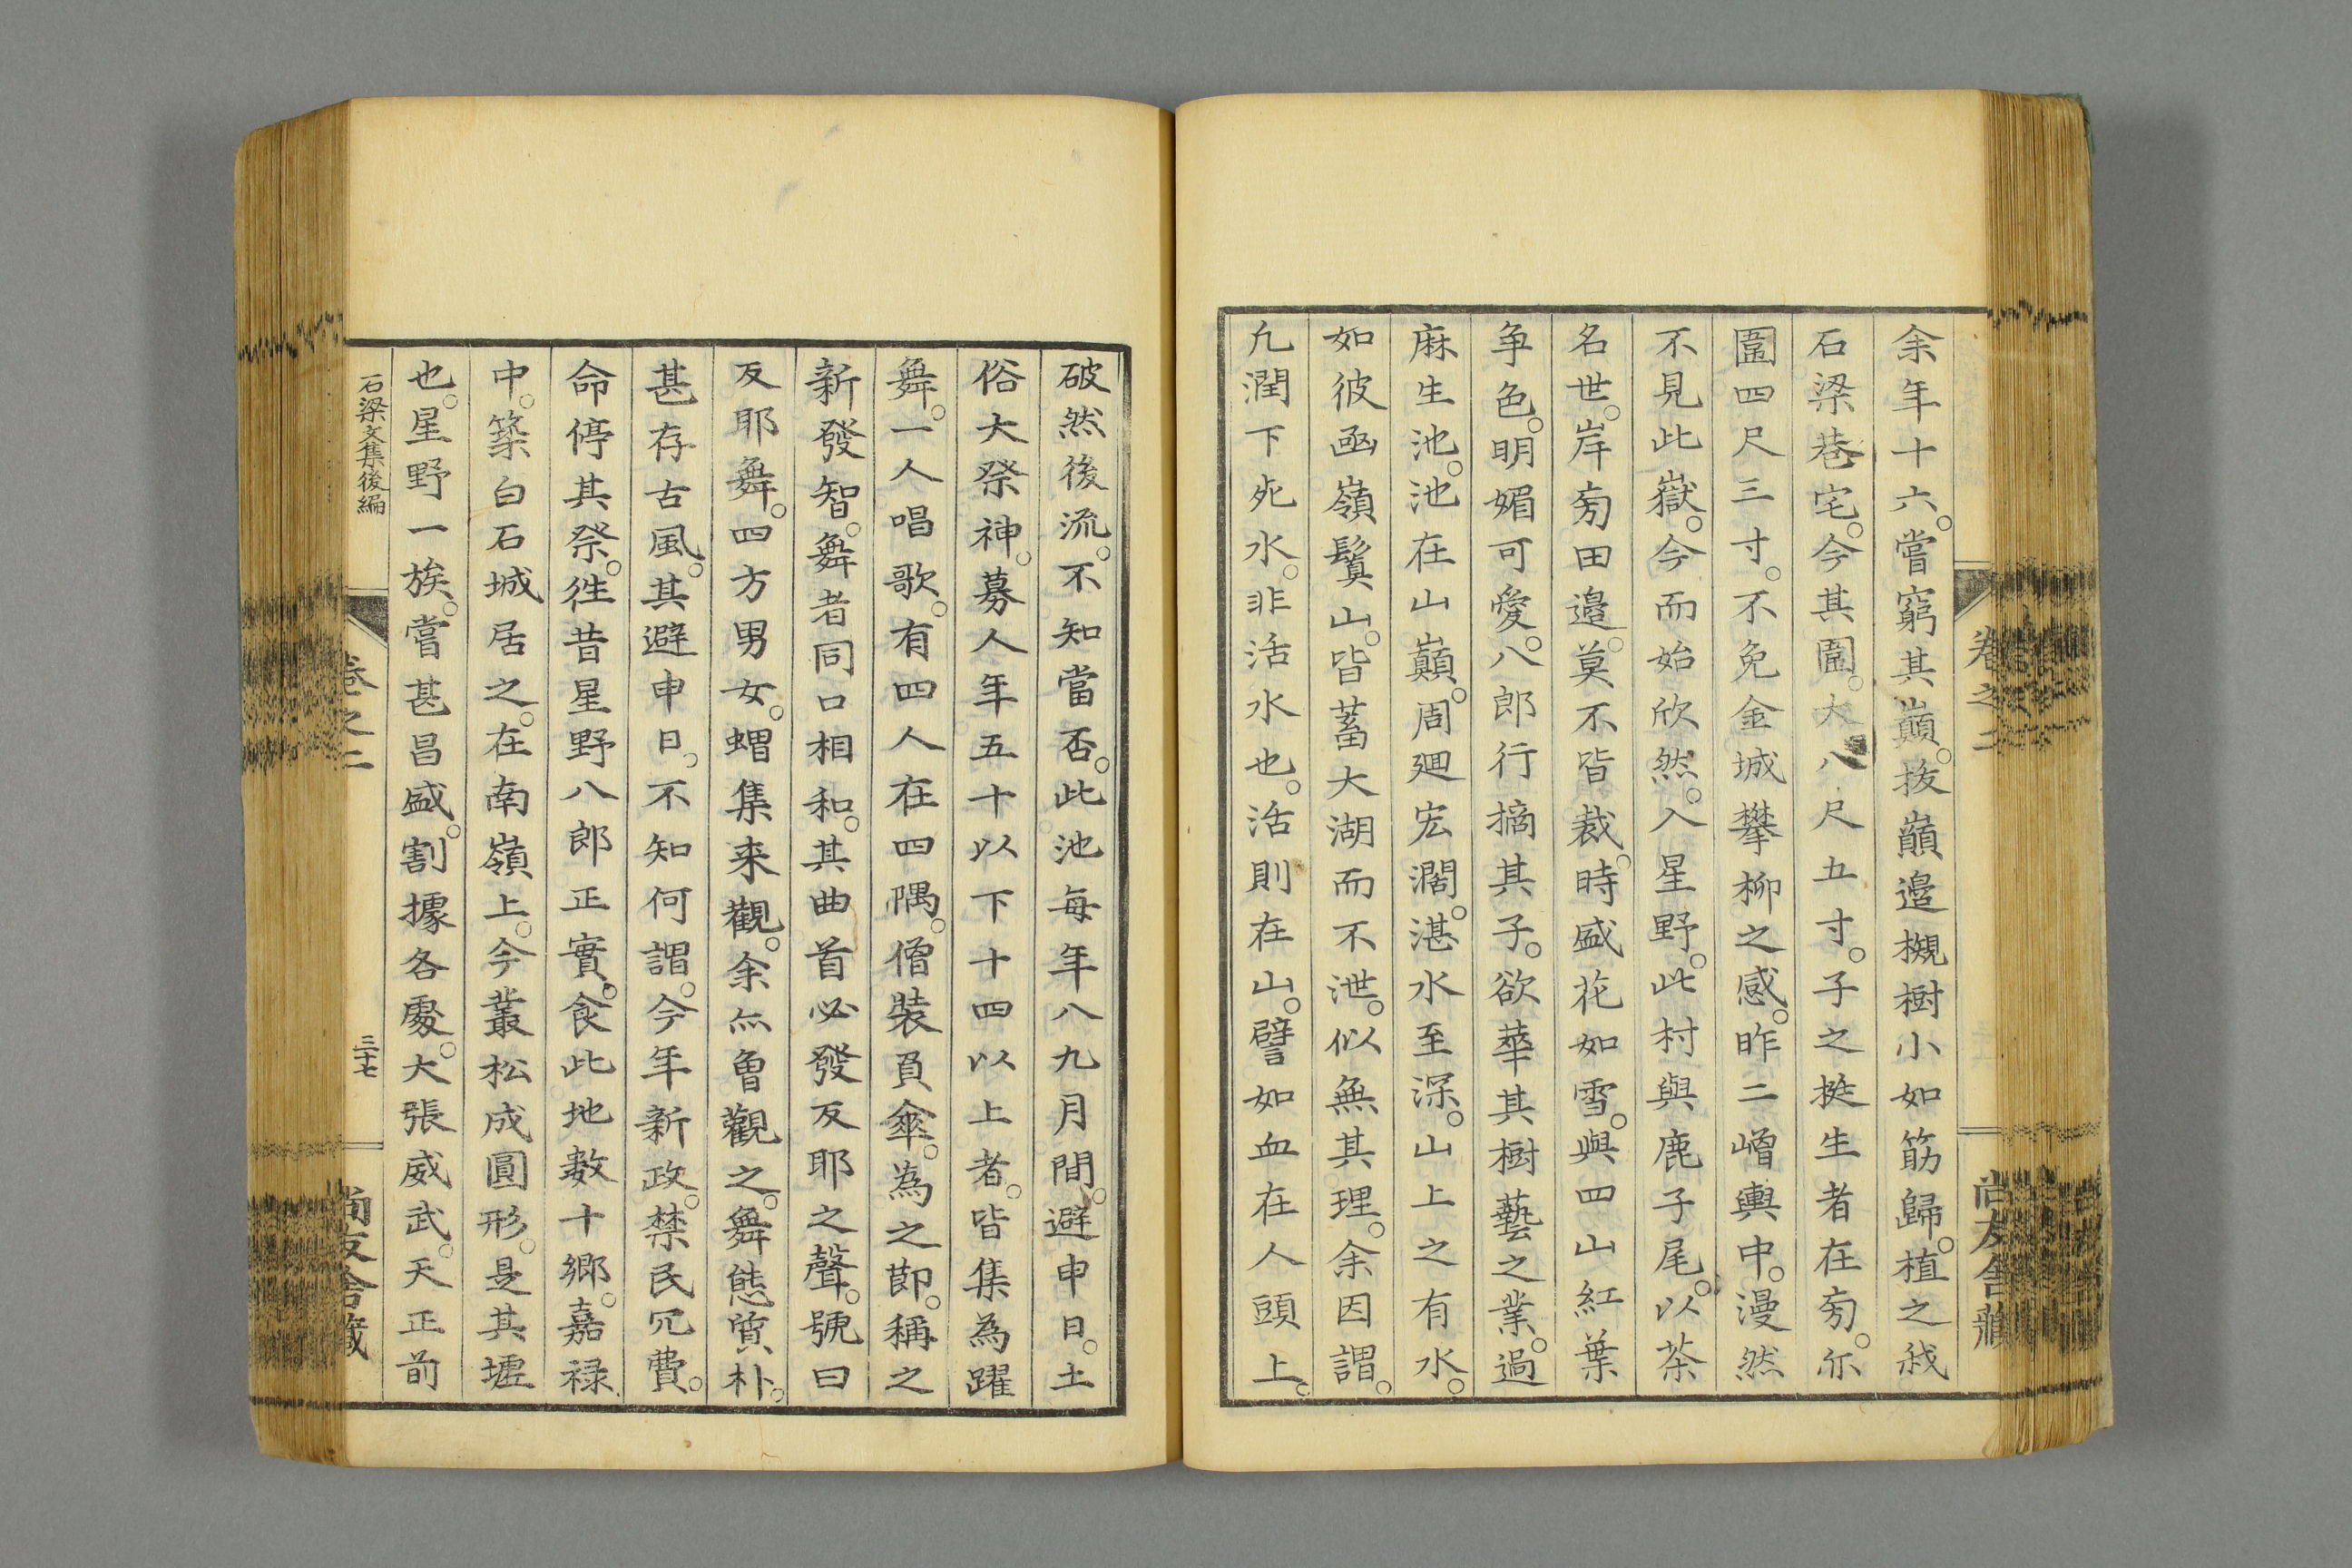 卷之二
尚友舍藏
余年十六。嘗窮其巔。拔巔邉櫬樹小如筯歸。植之我
石梁巷宅。今其圍。大八尺五寸。子之挺生者在旁。亦
圍四尺三寸。不免金城攀柳之感。昨二嶒輿中。漫然
不見此嶽。今而始欣然。入星野。此村與鹿子尾。以茶
名世。岸旁田邉。莫不皆栽。時盛花如雪。與四山紅葉
争色。明媚可愛。八郎行摘其子。欲華其樹藝之業。過
麻生池。池在山巔。周廻宏濶。湛水至深。山上之有水。
如彼凾嶺鬒山。皆蓄大湖而不泄。似無其理。余因謂。
凢潤下死水。非活水也。活則在山。譬如血在人頭上。
破然後流。不知當否。此池每年八九月間。避申日。土
俗大祭神。募人年五十以下十四以上者。皆集為躍
舞。一人唱歌。有四人在四隅。僧裝負傘。為之節。稱之
新發智。舞者同口相和。其曲首必發反耶之聲。號曰
反耶舞。四方男女。蝟集来觀。余亦曽觀之。舞態質朴。
甚存古風。其避申日。不知何謂。今年新政。禁民冗費。
命停其祭。徃昔星野八郎正實。食此地數十郷。嘉禄
中。築白石城居之。在南嶺上。今叢松成圓形。是其墟
也。星野一族。嘗甚昌盛。割據各處。大張威武。天正前
石梁文集後編
卷之二
三十七
尚友舍藏